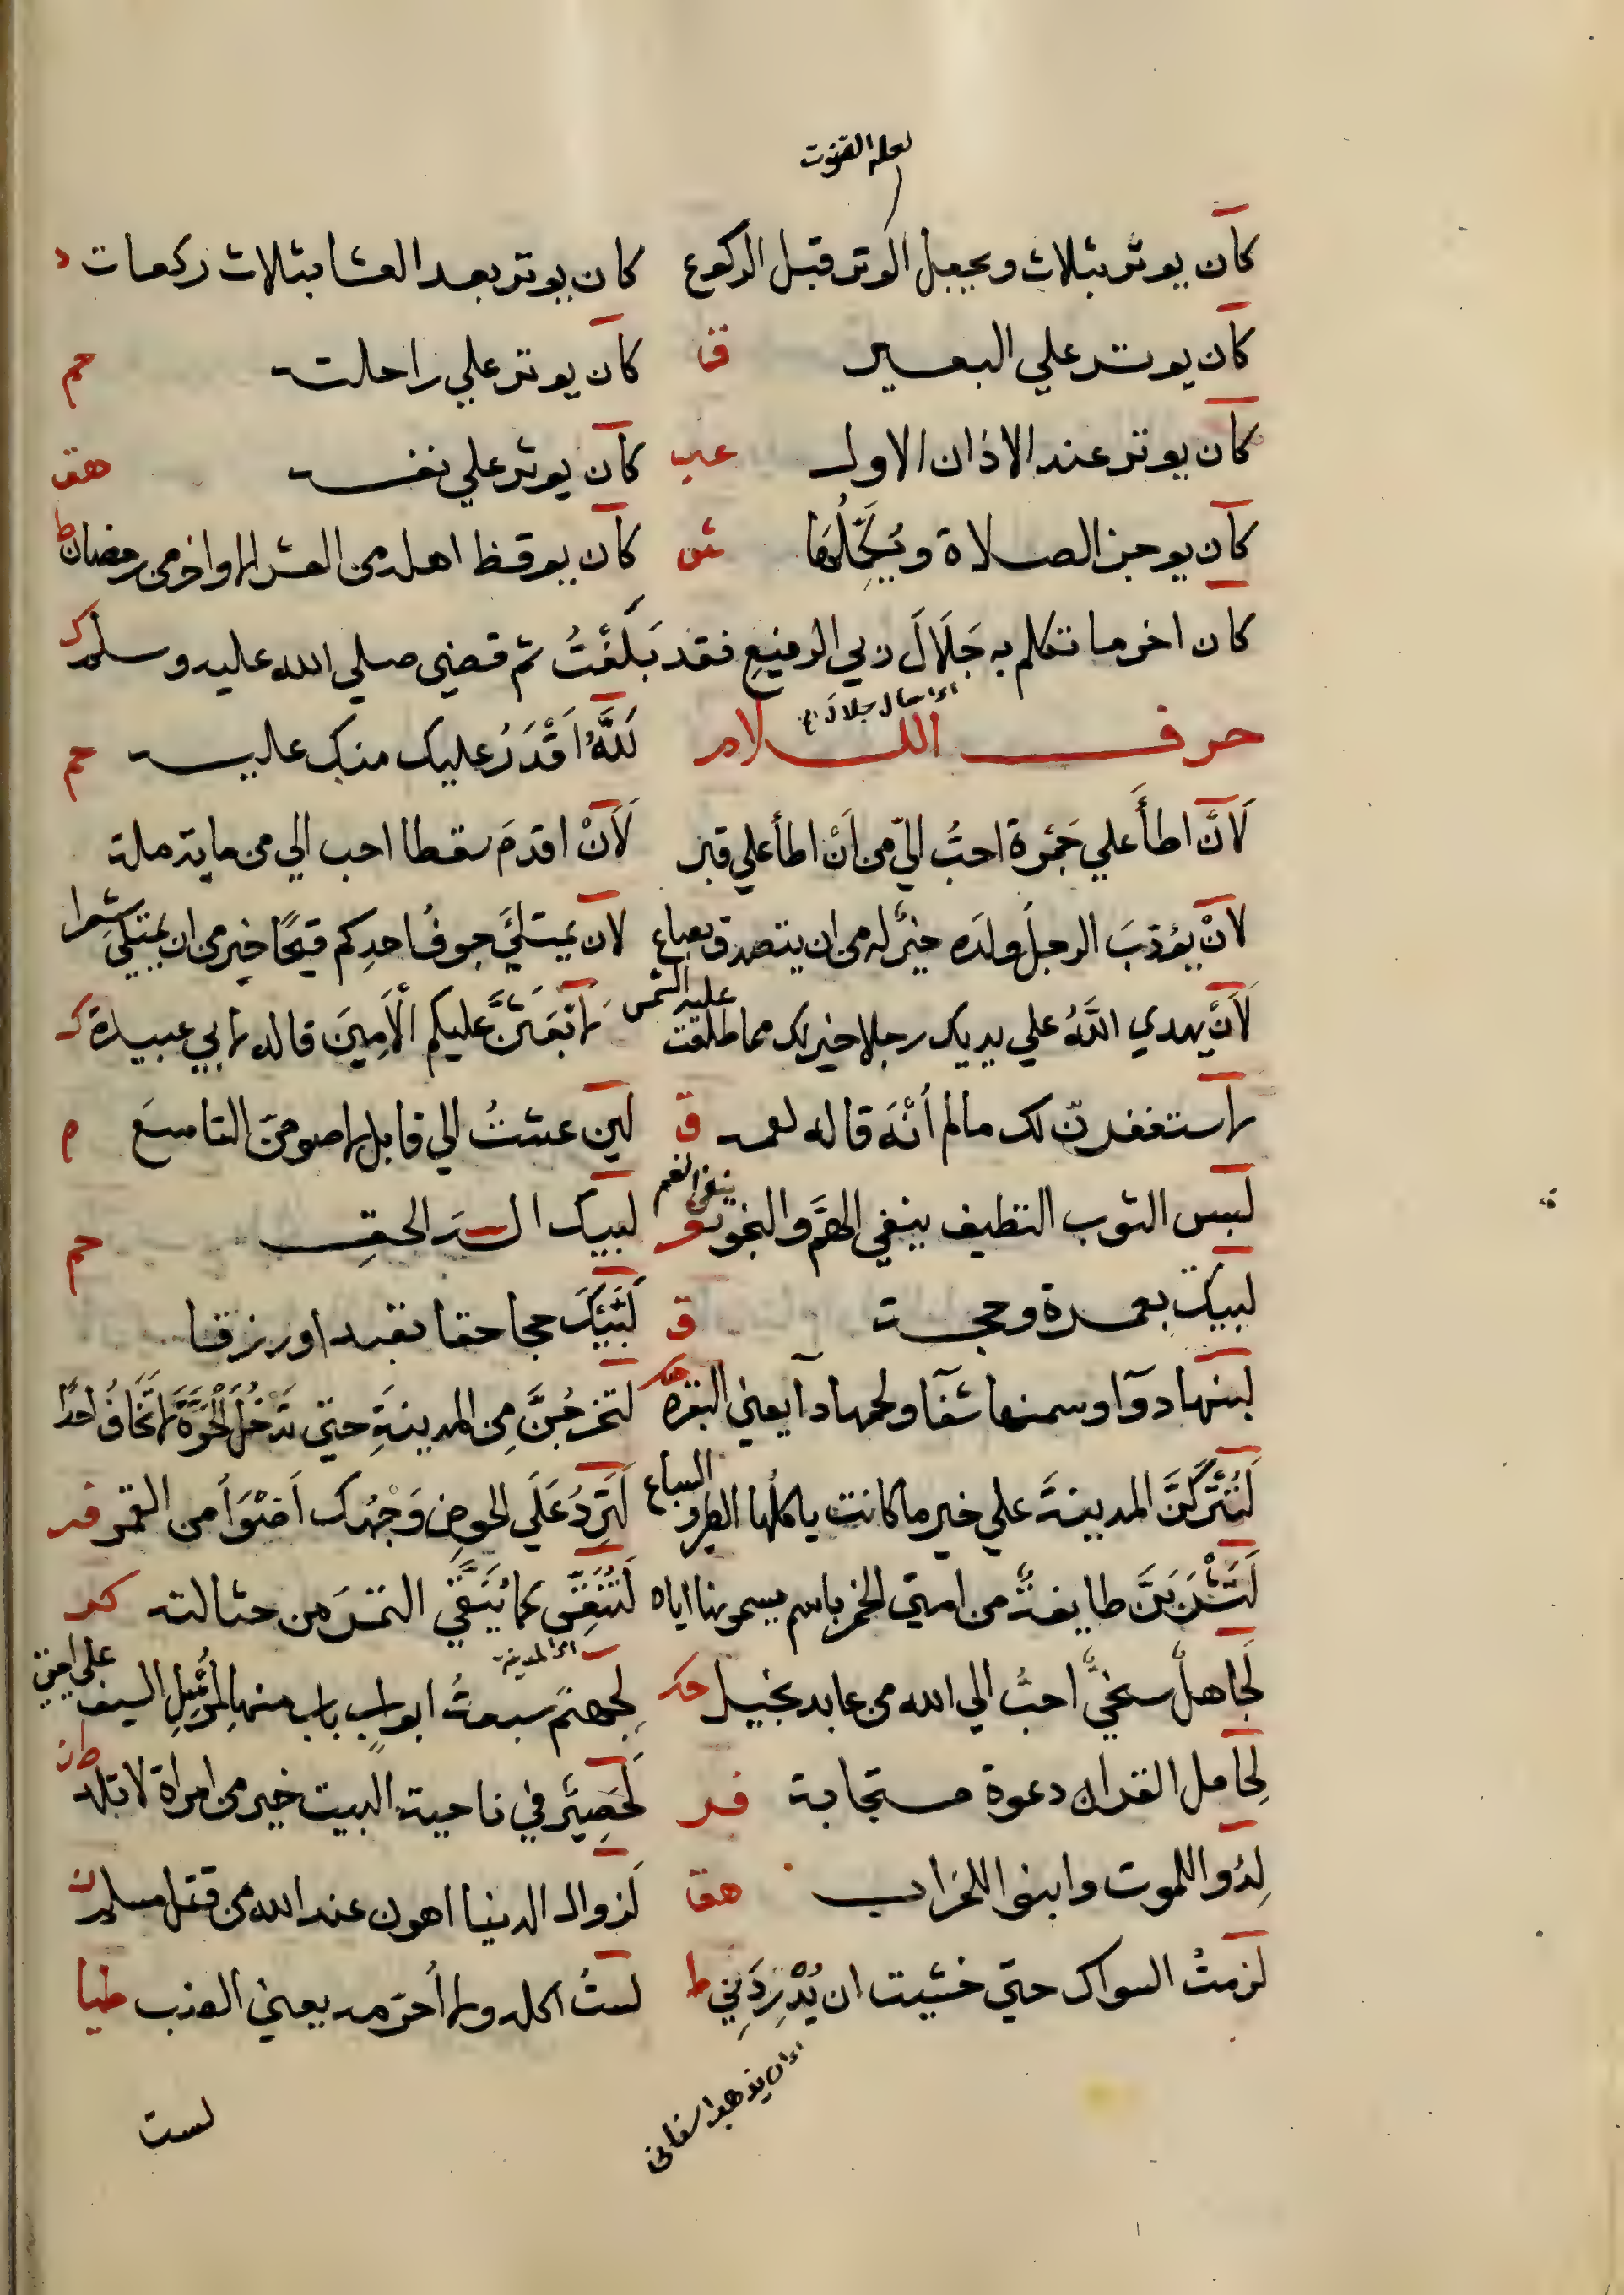 لعله القنوت
كان يوتر بثلاث ويجعل الوتر قبل الركوع كان يوتر بعد العشا بثلاث ركعات د
كان يوتر علي البعير ق كان يوتر علي راحلته حم
كان يوتر عند الاذان الاول كان يوتر علي نفسه هق
كان يوجز الصلاة ويُكَمِّلُها كان يوقظ اهله من العشر الاواخر من رمضان ط
كان اخر ما تكلم به جَلَالَ ربي الرفيعِ فقد بَلَّغْتُ ثم قضي صلي الله عليه وسلم ك
حرف اللام لَلَّهُ اَقْدَرُ عليك منك عليه حم
لَأَنْ اطأَ علي جَمْرَة احبُّ اليّ من اَنْ اطأ علي قبر لَأَنْ اقدمَ سقطا احب الي من ماية
لَأنْ يؤدّبَ الرجلُ ولدَه خيرٌ له من ان يتصدق بصاع لان يمتلئَ جوفُ احدِكم قيحًا خير من ان يمتلئ شعرا
لَأَنْ يهدي اللَّهُ علي يديك رجلا خير لك مما طلعت عليه الشمس لابْعَثَنَّ عليكم الْأَمِينَ قاله لابي عبيدة ك
لاستغفرنّ لك مالم أُنْهَ قاله لعمه ق لين عشتُ الي قابل لاصومن التاسعَ م
لبس الثوب النظيف ينفي الهَمَّ والنجو ينفي الغم لبيك اله الحقِ حم
لبيك بعمرة وحجة ق لَبَّيْكَ حجا حقا تعبدا ورقا
لبنها دوآ وسمنها شفآ ولحمها دآ يعني البقرة لتخرجُنَّ مِن المدينةِ حتي تَدْخُلَ الْحَرَّةَ لا تَخَافُ احدًا
لَتُتْرَكَنَّ المدينةَ علي خير ما كانت ياكلُها الطير والسباع لَتَرِدُ عَلَي الحوضِ وَجْهُك اَضْوَأُ من القمر فر
لَتَشْرَبَنَّ طايفةٌ من امتي الخمر باسم يسمونها اياه لَتُنْتَقَنَّ كما يُنَقَّي التمرَ من حثالته ك
لَجاهلٌ سخيٌّ احبُّ الي الله من عابد بخيل لجهنمَ سبعةُ ابوابٍ باب منها لِمَنْ سل السيف علي امتي
لِحامل القران دعوة مستجابة فر لَحَصِير في ناحية البيت خير من امراة لا تلد
لِدُوا للموت وابنوا للخراب هق لزوال الدنيا اهون عند الله من قتل مسلم ت
لزمتُ السواك حتي خشيت ان يُدْرِدَنِي ط لستُ اكله ولا أحرّمه يعني الضب طيا
اي ان يذهب اسناني
لست